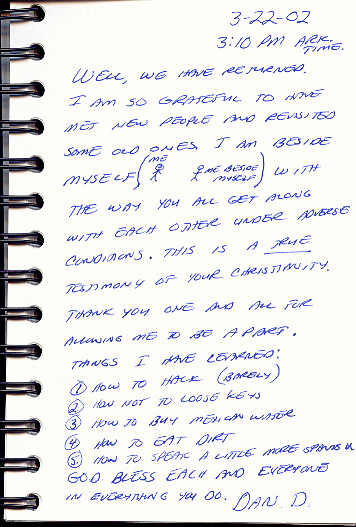 3-22-02
3:10 PM ARK.
TIME.
WELL, WE HAVE RETURNED.
I AM SO GRATEFUL TO HAVE
MET NEW PEOPLE AND REVISITED
SOME OLD ONES. I AM BESIDE
MYSELF (ME ME BESIDE MYSELF) WITH
THE WAY YOU ALL GET ALONG
WITH EACH OTHER UNDER ADVERSE
CONDITIONS. THIS IS A TRUE
TESTIMONY OF YOUR CHRISTIANITY.
THANK YOU ONE AND ALL FOR
ALLOWING ME TO BE A PART.
THINGS I HAVE LEARNED:
① HOW TO HACK (BARELY)
② HOW NOT TO LOOSE KEYS
③ HOW TO BUY MEXICAN WATER
④ HOW TO EAT DIRT
⑤ HOW TO SPEAK A LITTLE MORE
GOD BLESS EACH AND EVERYONE
IN EVERYTHING YOU DO. DAN D.